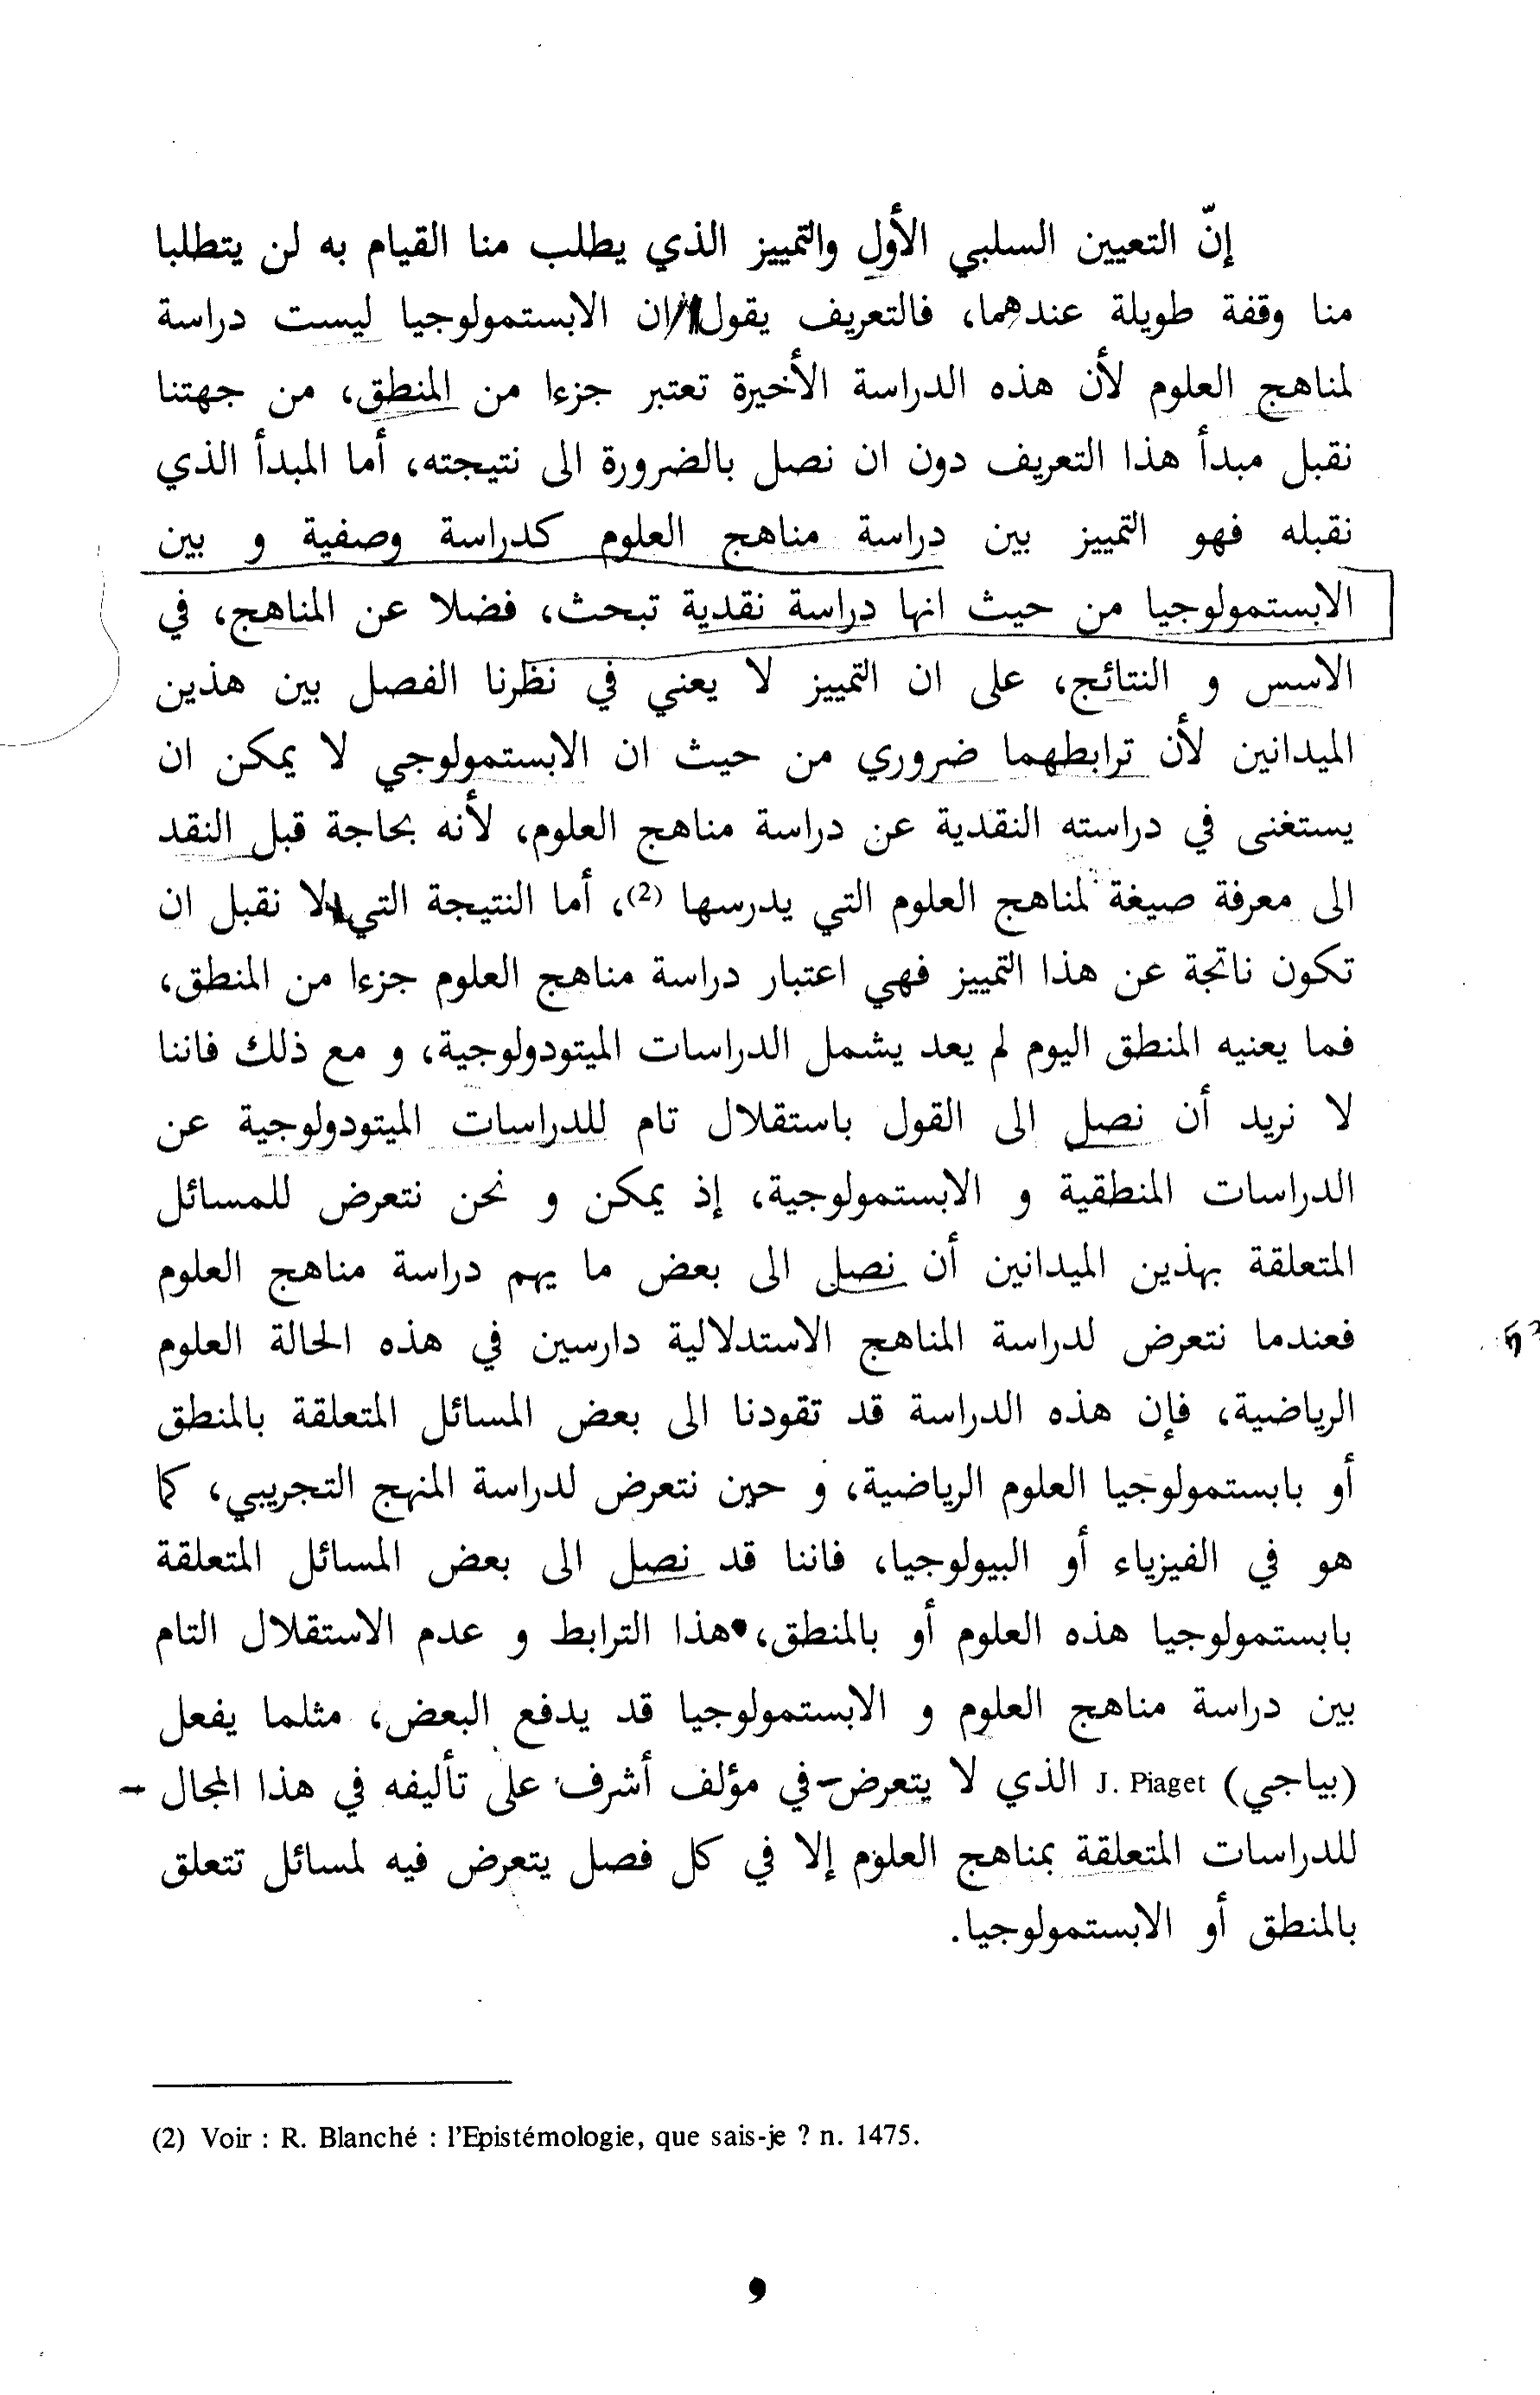 إنّ التعيين السلبي الأول والتمييز الذي يطلب منا القيام به لن يتطلبا
منا وقفة طويلة عندهما، فالتعريف يقول ان الابستمولوجيا ليست دراسة
لمناهج العلوم لأن هذه الدراسة الأخيرة تعتبر جزءا من المنطق، من جهتنا
نقبل مبدأ هذا التعريف دون ان نصل بالضرورة الى نتيجته، أما المبدأ الذي
نقبله فهو التمييز بين دراسة مناهج العلوم كدراسة وصفية و بين
الابستمولوجيا من حيث انها دراسة نقدية تبحث، فضلا عن المناهج، في
الاسس و النتائج، على ان التمييز لا يعني في نظرنا الفصل بين هذين
الميدانين لأن ترابطهما ضروري من حيث ان الابستمولوجي لا يمكن ان
يستغنى في دراسته النقدية عن دراسة مناهج العلوم، لأنه بحاجة قبل النقد
الى معرفة صيغة لمناهج العلوم التي يدرسها (2)، أما النتيجة التي لا نقبل ان
تكون ناتجة عن هذا التمييز فهي اعتبار دراسة مناهج العلوم جزءا من المنطق،
فما يعنيه المنطق اليوم لم يعد يشمل الدراسات الميتودولوجية، و مع ذلك فاننا
لا نريد أن نصل الى القول باستقلال تام للدراسات الميتودولوجية عن
الدراسات المنطقية و الابستمولوجية، إذ يمكن و نحن نتعرض للمسائل
المتعلقة بهذين الميدانين أن نصل الى بعض ما يهم دراسة مناهج العلوم
فعندما نتعرض لدراسة المناهج الاستدلالية دارسين في هذه الحالة العلوم
الرياضية، فإن هذه الدراسة قد تقودنا الى بعض المسائل المتعلقة بالمنطق
أو بابستمولوجيا العلوم الرياضية، و حين نتعرض لدراسة المنهج التجريبي، كما
هو في الفيزياء أو البيولوجيا، فاننا قد نصل الى بعض المسائل المتعلقة
بابستمولوجيا هذه العلوم أو بالمنطق، هذا الترابط و عدم الاستقلال التام
بين دراسة مناهج العلوم و الابستمولوجيا قد يدفع البعض، مثلما يفعل
(بياجي) J. Piaget الذي لا يتعرض - في مؤلف أشرف على تأليفه في هذا المجال -
للدراسات المتعلقة بمناهج العلوم إلا في كل فصل يتعرض فيه لمسائل تتعلق
بالمنطق أو الابستمولوجيا.
(2) Voir : R. Blanché : l'Epistémologie, que sais-je ? n. 1475.
9